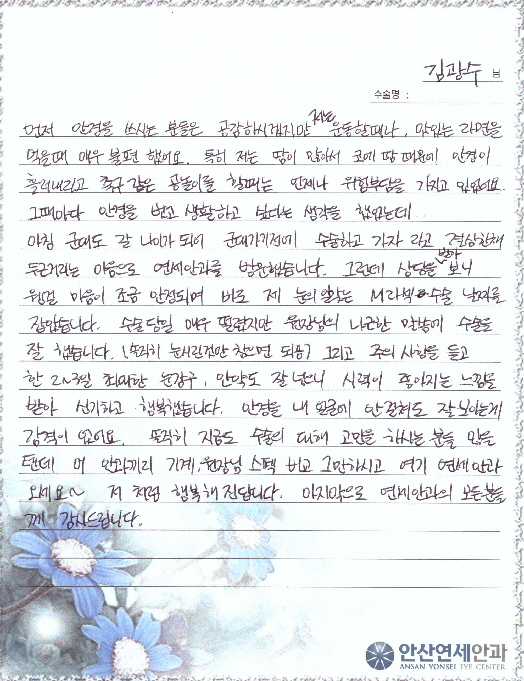 김광수 님
수술명 :
먼저 안경을 쓰시는 분들은 공감하시겠지만 저는 운동할때나, 맛있는 라면을
먹을때 매우 불편 했어요. 특히 저는 땀이 많아서 코에 땀 때문에 안경이
흘러내리고 축구 같은 공놀이를 할때는 언제나 위험부담을 가지고 있었어요.
그때마다 안경을 벗고 생활하고 싶다는 생각을 했었는데
마침 군대도 갈 나이가 되어 군대가기전에 수술하고 가자 라고 결심한채
두근거리는 마음으로 연세안과를 방문했습니다. 그런데 상담을 받아 보니
웬걸 마음이 조금 안정되며 바로 제 눈의 맞는 M라섹 수술 날짜를
잡았습니다. 수술당일 매우 떨렸지만 원장님의 나근한 말빨에 수술을
잘 했습니다. (솔직히 눈시린것만 참으면 되용) 그리고 주의 사항을 듣고
한 2~3일 최대한 눈감구, 안약도 잘 넣으니 시력이 좋아지는 느낌을
받아 신기하고 행복했습니다. 안경을 내 얼굴에 안 걸쳐도 잘보이는게
감격이 었어요. 솔직히 지금도 수술의 대해 고민을 하시는 분들 있을
텐데 머 안과끼리 기계, 원장님 스펙 비교 그만하시고 여기 연세안과
오세요~ 저 처럼 행복해 진답니다. 마지막으로 연세안과의 모든분들
께 감사드립니다.
안산연세안과
ANSAN YONSEI EYE CENTER